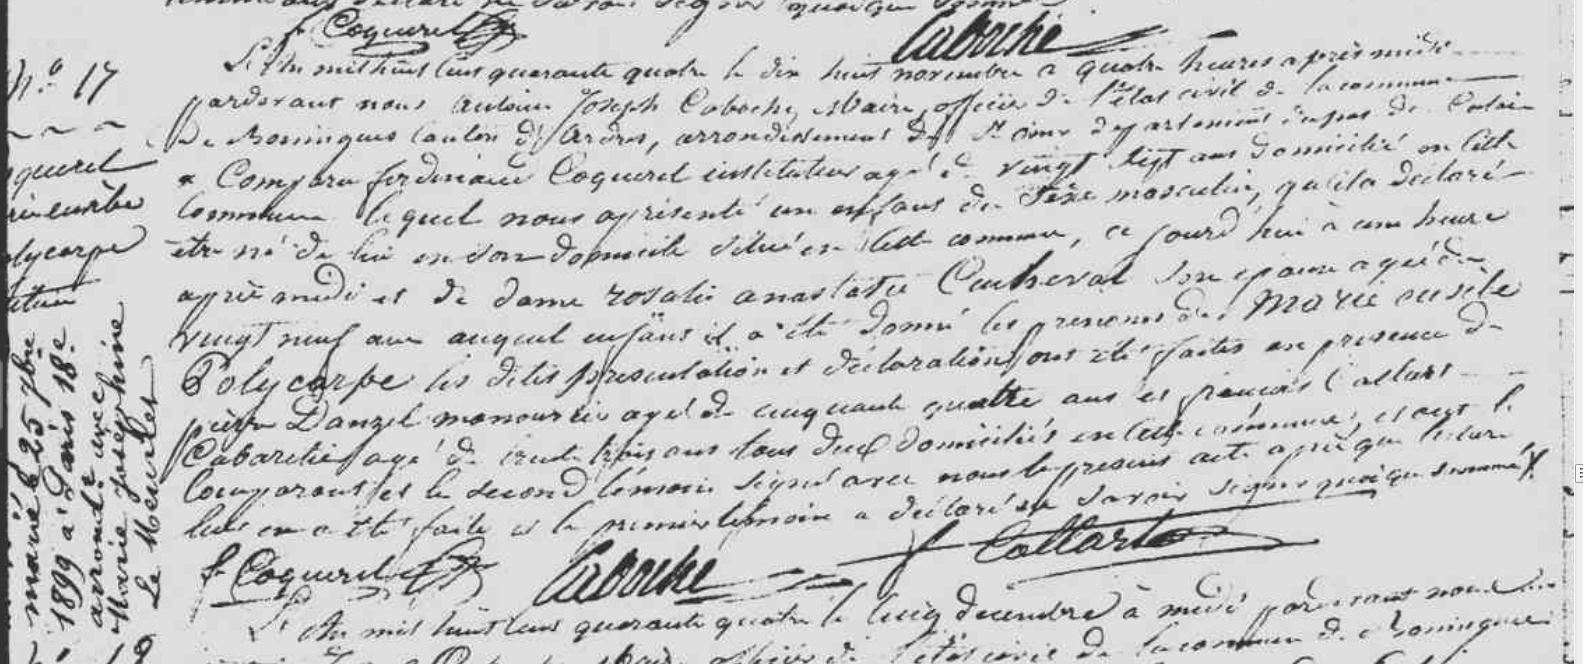 f Coquerel
Caboche
N.º 17
L'An mil huit cent quarante quatre le dix huit novembre a quatre heures après midi
pardevant nous Antoine Joseph Caboche, Maire, officier de l'état civil de la commune
De Bonningues Canton d'Ardres, arrondissement de St omer departement du pas de Calais
a Comparu ferdinand Coquerel instituteur agé de vingt sept ans domicilié en cette
Commune lequel nous a présenté un enfant du sexe masculin, qu'il a declaré
être né de lui en son domicile situé en cette commune, ce jourd'hui à une heure
après midi et de dame rosalie anastasie Cucheval son epouse agée de
vingt neuf ans auquel enfant il a été donné les prenoms de Marie
Polycarpe les dites presentation et déclaration ont été faites en presence de
pierre Danzel manouvrier agé de cinquante quatre ans et françois Collart
Cabaretier agé de trente trois ans tous deux domiciliés en cette commune, et ont le
Comparant et le second témoin signé avec nous le present acte après que lecture
leur en a été faite et le premier témoin a déclaré ne savoir signer quoique sommé
f Coquerel
Caboche
f Collart
L'An mil huit cent quarante quatre le cinq decembre à midi pardevant nous
officier de l'état civil de la commune de Bonningues
querel
lycarpe
marié le 25 7bre
1899 à Paris 18e
arrondt avec
Marie Josephine